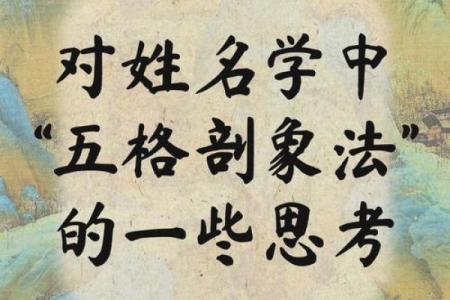 对姓名学中
“五格剖象法”
的一些思考